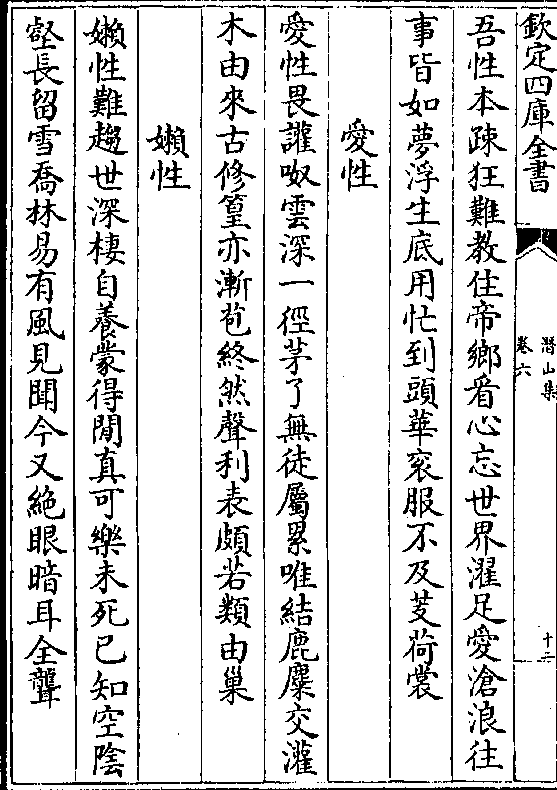 欽定四庫全書
潛山集
卷六
十二
吾性本疎狂難教住帝鄉看心忘世界濯足愛滄浪往
事皆如夢浮生底用忙到頭華衮服不及芰荷裳
愛性
愛性畏讙呶雲深一徑茅了無徒屬累唯結鹿麋交灌
木由來古修篁亦漸苞終然聲利表頗若類由巢
嬾性
嬾性難趨世深棲自養蒙得閒真可樂未死已知空陰
壑長留雪喬林易有風見聞今又絶眼暗耳全聾